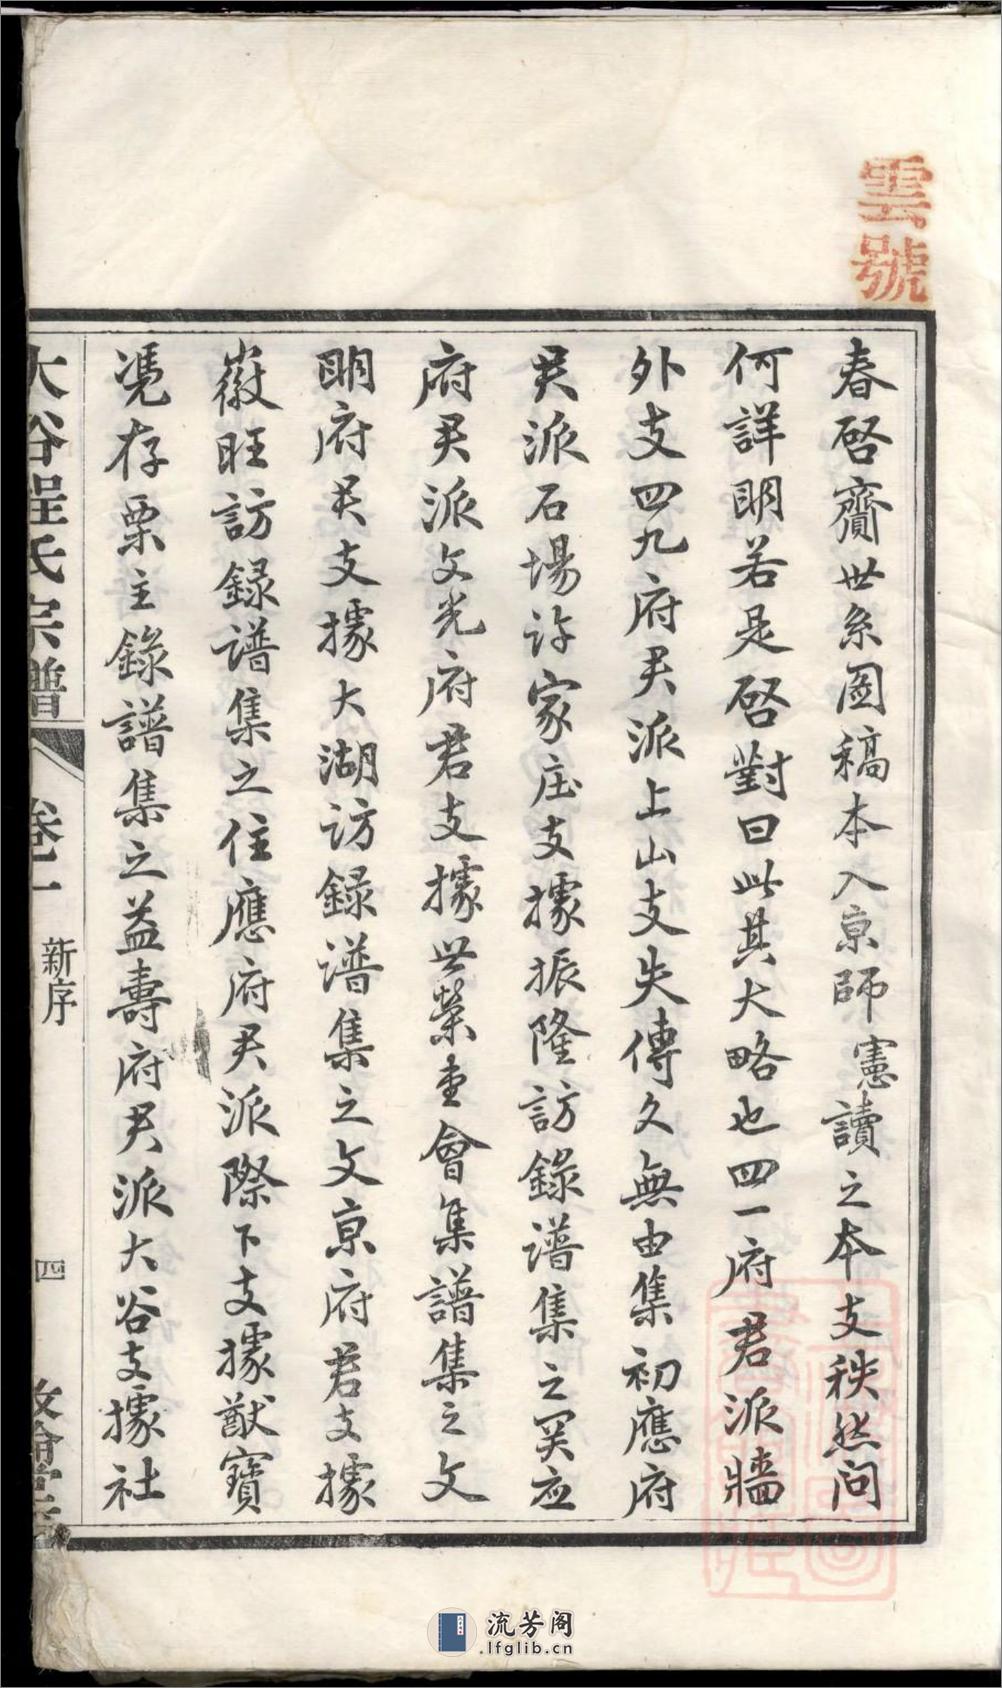 雲號
春啓齎世系圖稿本入京師憲讀之本支秩然問
何詳明若是啓對曰此其大略也四一府君派牆
外支四九府君派上山支失傳久無由集初應府
君派石場許家庄支據振隆訪錄譜集之関应
府君派文光府君支據世榮查會集譜集之文
明府君支據大湖訪錄譜集之文京府君支據
嶽旺訪錄譜集之住應府君派際下支據猷寶
凴存栗主錄譜集之益壽府君派大谷支據社
大谷程氏宗譜
卷一
新序
四
敦倫堂
流芳阁
.lfglib.cn